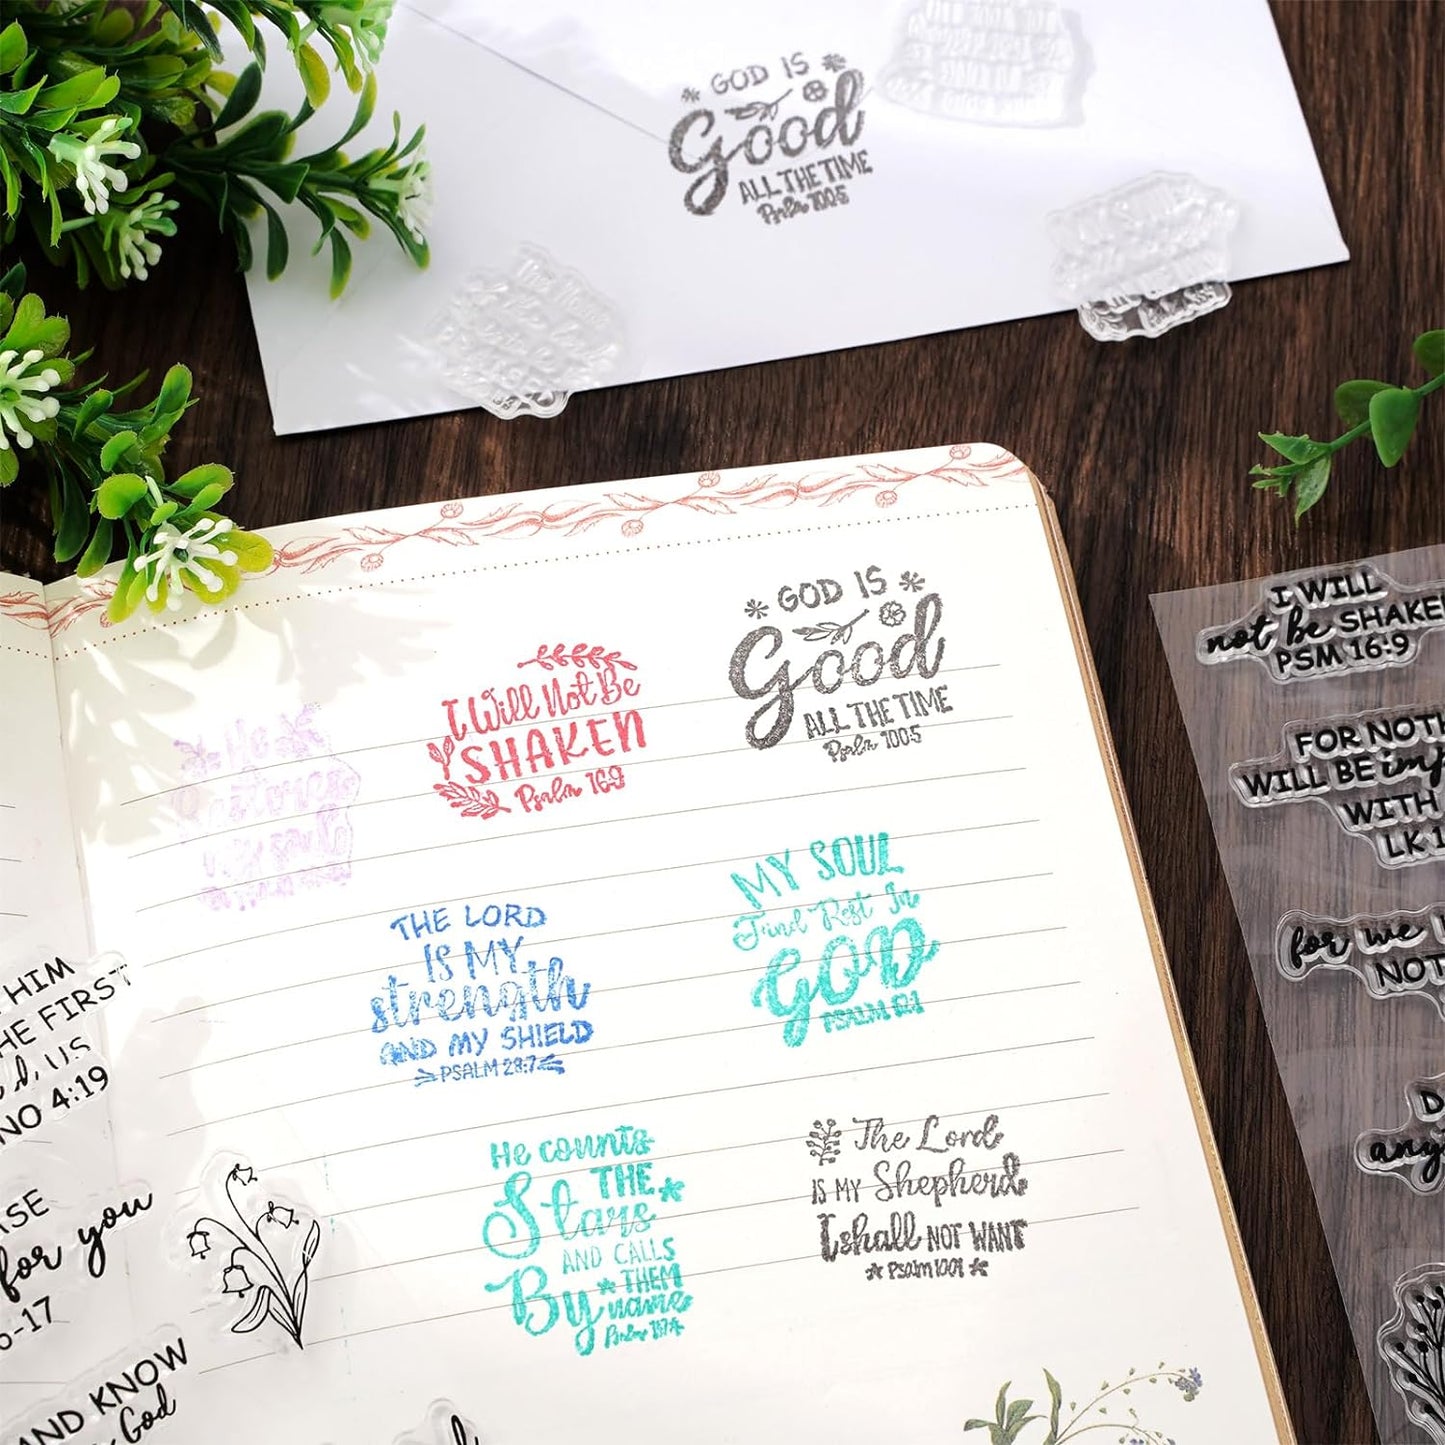 GOD IS
Good
ALL THE TIME
Psalm 100:5
GOD IS
Good
ALL THE TIME
Psalm 100:5
I Will Not Be
SHAKEN
Psalm 16:9
He
Restores
my soul
THE LORD
IS MY
strength
AND MY SHIELD
PSALM 28:7
MY SOUL
Find Rest In
GOD
PSALM
He counts
THE
Stars
AND CALLS
THEM
By name
Psalm
The Lord
IS MY Shepherd
I shall NOT WANT
Psalm
I WILL
not be SHAKEN
PSM 16:9
FOR NOTH
WILL BE imp
WITH
LK 1
for we
NOT
D
any
HIM
HE FIRST
d, US
NO 4:19
SE
for you
-17
AND KNOW
God